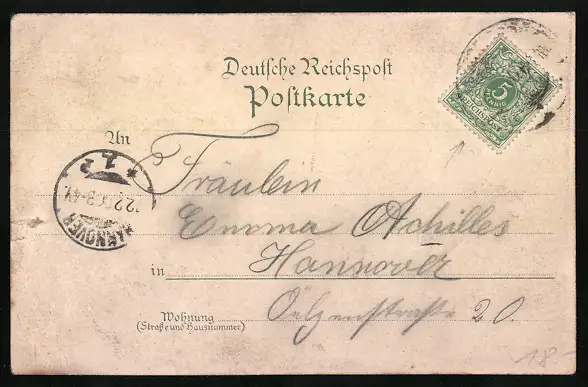 Deutsche Reichspost
Postkarte
An
Fräulein
Emma Achilles
in Hannover
Wohnung
(Straße und Hausnummer)
Oelzenstraße 20.
5
PFENNIG
REICHSPOST
HANNOVER
18-